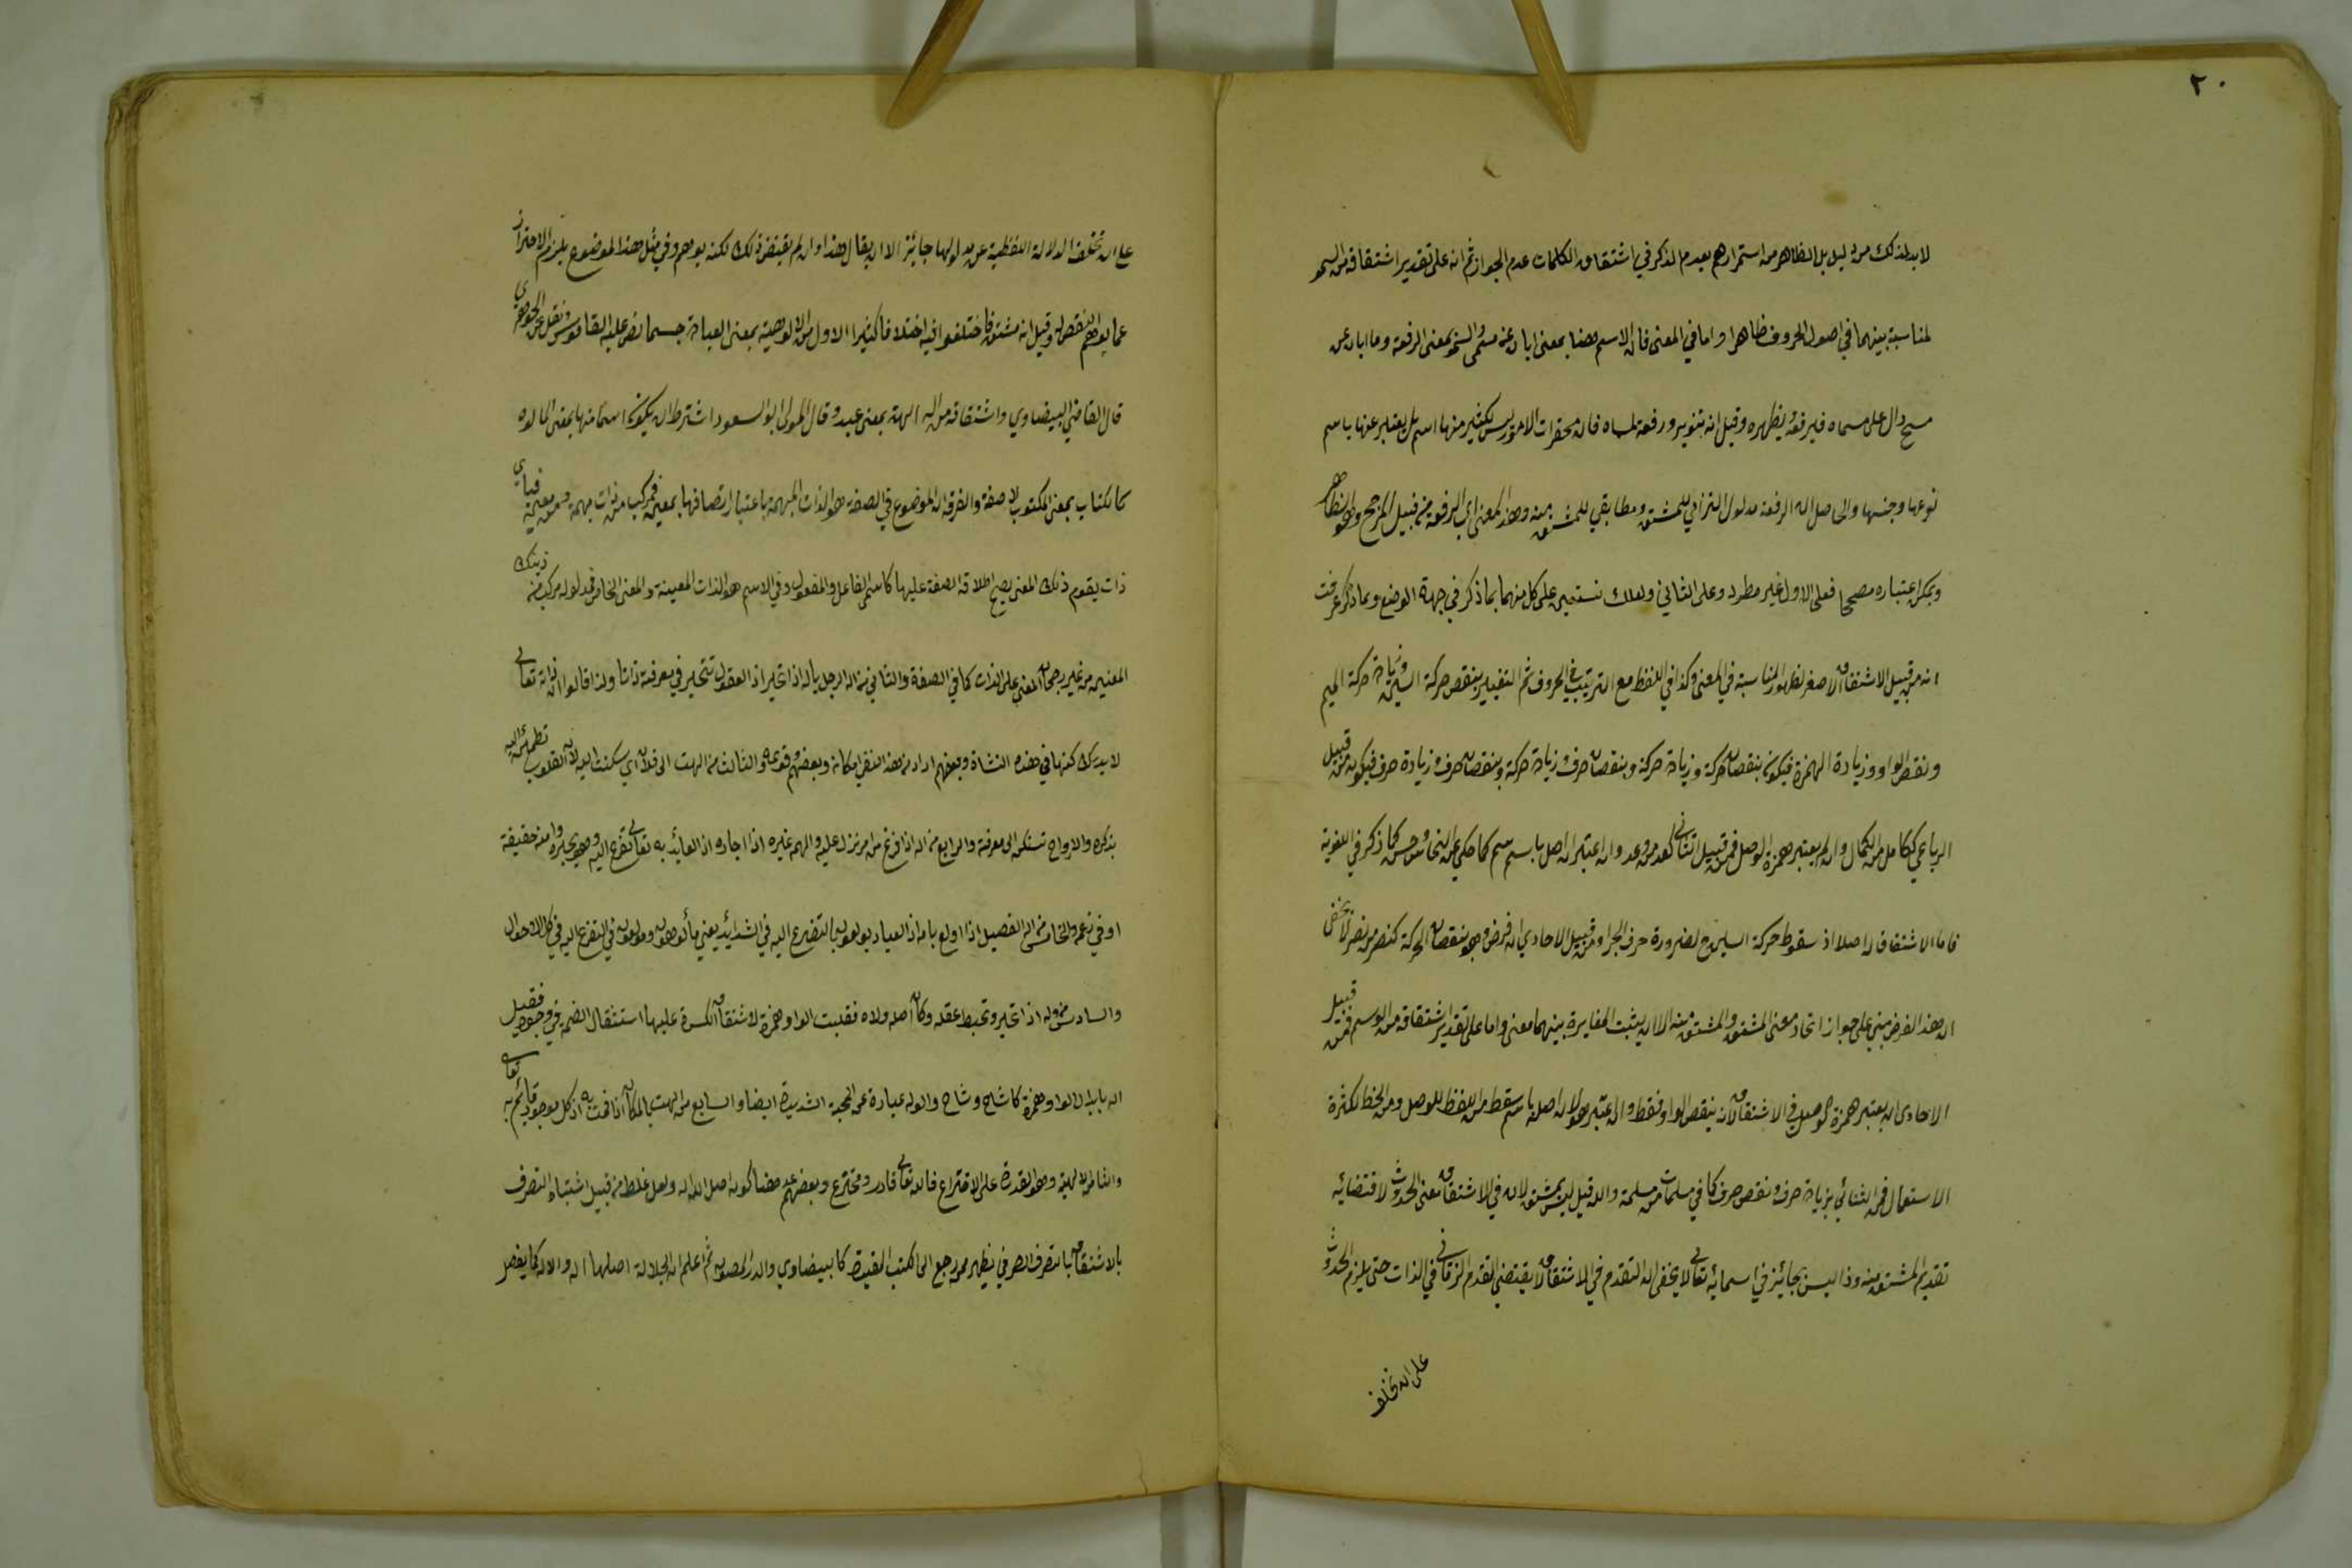 ٢٠
لا بد لذلك من دليل بل الظاهر من استمرارهم بعدم الذكر في اشتقاق الكلمات عدم الجواز ثم انه على تقدير اشتقاقه من السمو
لمناسبة بينهما في اصول الحروف ظاهرا واما في المعنى فان الاسم هنا بمعنى ابان عن مسمى والسمو بمعنى الرفعة وما ابان عن
مسمى دال على مسماه فيرفعه ويظهره وقيل انه تنوير ورفعة لمسماه فان محقرات الامور ليس لكثير منها اسم بل يعتبر عنها باسم
نوعها وجنسها والحاصل ان الرفعة مدلول التزامي للمشتق ومطابقي للمشتق منه وهذا المعنى اي الرفعة من قبيل المرجح وهو الظاهر
ويمكن اعتباره مصححا فعلى الاول غير مطرد وعلى الثاني ولعلك تستعين على كل منهما بما ذكر في جهة الوضع وبما ذكر عرفت
انه من قبيل الاشتقاق الاصغر لظهور المناسبة في المعنى وكذا في اللفظ مع الترتيب في الحروف ثم التغيير بنقص حركة السين وزيادة حركة الميم
ونقص الواو وزيادة الهمزة فيكون بنقصان حركة وزيادة حركة وبنقصان حرف وزيادة حركة وبنقصان حرف وزيادة حرف فيكون من قبيل
الرباعي ككامل من الكمال وان لم يعتبر همزة الوصل فمن قبيل الثاني كعد من وعد وان اعتبر ان اصل باسم سم كما حكي عن النحاس حسن كما ذكر في اللغوية
فاما الاشتقاق له اصلا اذ سقوط حركة السين لضرورة حرف الجر او من قبيل الاحادي ان فرض وجود نقصان الحركة كنصر من نصر لا يخفى
ان هذا الفرض مبني على جواز اتحاد معنى المشتق والمشتق منه الا ان يثبت المغايرة بينهما معنى واما على تقدير اشتقاقه من الوسم فمن قبيل
الاحادي ان يعتبر همزة الوصل في الاشتقاق لانه بنقص الواو فقط وان اعتبر هو لان اصله باسم سقط من اللفظ للوصل ومن الخط لكثرة
الاستعمال فمن الثنائي بزيادة حرف ونقص حرف كما في مسلمات من مسلمة والله قيل ليس بمشتق لان في الاشتقاق معنى الحدوث لاقتضائه
تقديم المشتق منه وذا ليس بجائز في اسمائه تعالى لا يخفى ان التقدم في الاشتقاق لا يقتضي التقدم الزماني في الذات حتى يلزم الحدوث
على ان تخلف
على ان تخلف الدلالة اللفظية عن مدلولها جائز الا ان يقال هذا وان لم يقتض ذلك لكنه يوهم وفي مثل هذا الموضوع يلزم الاحتراز
عما يوهم النقص وقيل انه مشتق فاختلفوا فيه اختلافا كثيرا الاول من الالوهية بمعنى العبادة حسبما نص عليه القاموس ونقل عن الجوهري
قال القاضي البيضاوي واشتقاقه من اله الهة بمعنى عبد وقال المولى ابو السعود اشترط ان يكون اسما منها بمعنى المالوه
كالكتاب بمعنى المكتوب لا صفة والفرق ان الموضوع في الصفة هو الذات المبهمة باعتبار اتصافها بمعنى فمركب من ذات مبهمة ومن معنى فباي
ذات يقوم ذلك المعنى يصح اطلاق الصفة عليها كاسم الفاعل والمفعول وفي الاسم هو الذات المعينة والمعنى الخاص فمدلوله مركب من ذينك
المعنيين من غير رجحان المعنى على الذات كما في الصفة والثاني من اله الرجل ياله اذا تحير اذ العقول تتحير في معرفة ذاتها ولذا قالوا ان ذاته تعالى
لا يدرك كنهها في هذه النشأة وبعضهم اراد من هذا النفي امكانه وبعضهم وقوعه والثالث من الهت الى فلان اي سكنت اليه لان القلوب تطمئن اليه
بذكره والارواح تسكن الى معرفته والرابع من اله اذا فزع من امر نزل عليه والهه غيره اذا اجاره اذ العائذ به تعالى يفزع اليه وهو يجيره او من حقيقة
او في زعمه والخامس من اله الفصيل اذا اولع بامه اذ العباد يولعون بالتضرع اليه في الشدائد يعني مألوهون ومولعون في التفزع اليه في كل الاحوال
والسادس من وله اذا تحير وتخبط عقله وكان اصله ولاه فقلبت الواو همزة لاشتقاق الكسرة عليها استثقال الضمة في وجوه فقيل
اله بابدال الواو همزة كاشاح وشاح والوله عبارة عن المحبة الشديدة ايضا والسابع من الهت بالمكان اذا اقمت به اذ كل موجود قائم به تعالى
والثامن الالهية وهو القدرة على الاختراع فانه تعالى قادر ومخترع وبعضهم عد هنا كون اصل الله اله ولعل غلط من قبيل اشتباه التصرف
بالاشتقاق بالتصرف الصرفي يظهر ممن رجع الى الكتب القديمة كالبيضاوي والدر المصون ثم اعلم ان الجلالة اصلها اله والاله كما يفسر